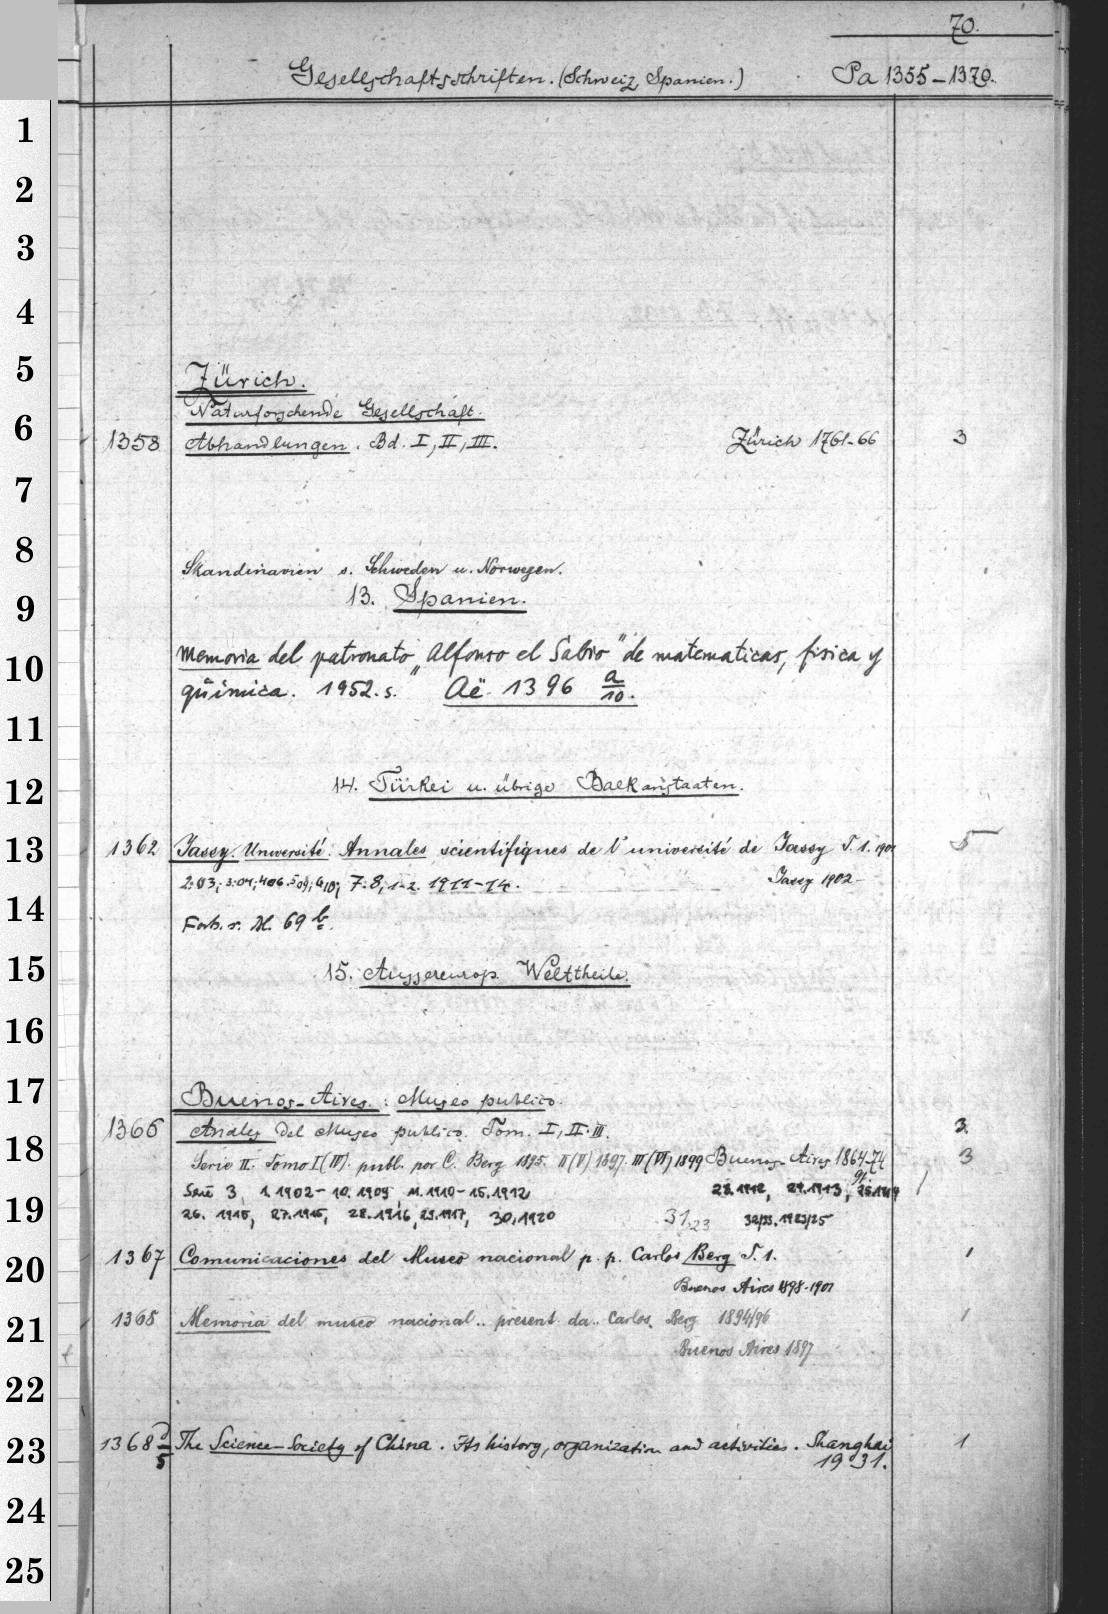 70.
Gesellschaftsschriften. (Schweiz, Spanien.) Pa 1355-1370.
1
2
3
4
5
Zürich.
Naturforschende Gesellschaft.
6
1358 Abhandlungen. Bd. I, II, III. Zürich 1761-66 3
7
8
Skandinavien s. Schweden u. Norwegen.
9
13. Spanien.
10
Memoria del patronato „Alfonso el Sabio" de matematicas, fisica y
quimica. 1952. s. Aë. 1396 a/10.
11
12
14. Türkei u. übrige Balkanstaaten.
13
1362 Jassy. Université. Annales scientifiques de l'université de Jassy T. 1. 1901 5
2.03, 3.04, 7.8, 1-2. 1911-14. Jassy 1902-
14
Forts. s. M. 69 b.
15
15. Aussereurop. Welttheile.
16
17
Buenos-Aires: Museo publico.
1366 Anales del Museo publico. Tom. I, II. III. 3.
18
Serie II. Tomo I (IV). publ. por C. Berg 1895. II (V) 1897. III (VI) 1899 Buenos-Aires 1864-74 3
Serie 3, 1. 1902- 10. 1909, 11. 1910- 15. 1912 23. 1912, 24. 1913, 25. 1914 1
19
26. 1915, 27. 1915, 28. 1916, 29. 1917, 30, 1920 31, 23 32/33. 1923/25
1367 Comunicaciones del Museo nacional p. p. Carlos Berg T. 1. 1
20
Buenos Aires 1898-1901
21
1368 Memoria del museo nacional.. present. da.. Carlos. Berg 1894/96 1
Buenos Aires 1897
22
23
1368 The Science-Society of China. Its history, organization and activities. Shanghai 1
5 1931.
24
25